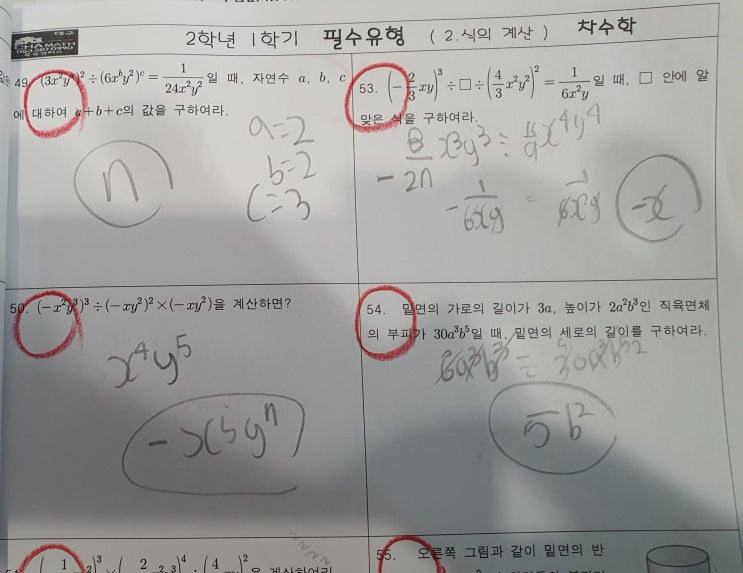 CHAMATH
2학년 1학기 필수유형 ( 2.식의 계산 ) 차수학
49. (3x²y^a)² ÷ (6x^b y²)^c = 1/(24x²y²) 일 때, 자연수 a, b, c
에 대하여 a+b+c의 값을 구하여라.
a=2
b=2
c=3
7
53. (-2/3 xy)³ ÷ □ ÷ (4/3 x²y²)² = 1/(6x²y) 일 때, □ 안에 알
맞은 식을 구하여라.
- 8/27 x³y³ ÷ 16/9 x⁴y⁴
- 1/(6xy) ÷ 1/(6x²y)
-x
50. (-x²y³)³ ÷ (-xy²)² × (-xy²)을 계산하면?
x⁴y⁵
-x⁵y⁷
54. 밑면의 가로의 길이가 3a, 높이가 2a²b³인 직육면체
의 부피가 30a³b⁵일 때, 밑면의 세로의 길이를 구하여라.
6a³b³ ÷ 30a³b⁵
5b²
을 계산하여라
55. 오른쪽 그림과 같이 밑면의 반